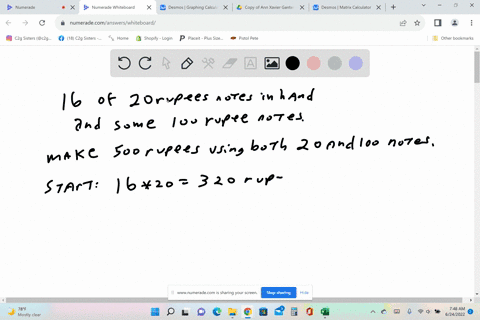 Numerade
Numerade Whiteboard
Desmos | Graphing Calcul
Copy of Ann Xavier Gantn
Desmos | Matrix Calculator
numerade.com/answers/whiteboard/
C2g Sisters (@c2g...
(18) C2g Sisters -...
Home
Shopify - Login
Pistol Pete
Other bookmarks
16 of 20 rupees notes in hand
and some 100 rupee notes.
make 500 rupees using both 20 and 100 notes.
START: 16*20 = 320 rup-
www.numerade.com is sharing your screen.
Stop sharing
Hide
78°F
Mostly clear
7:48 AM
6/24/2022